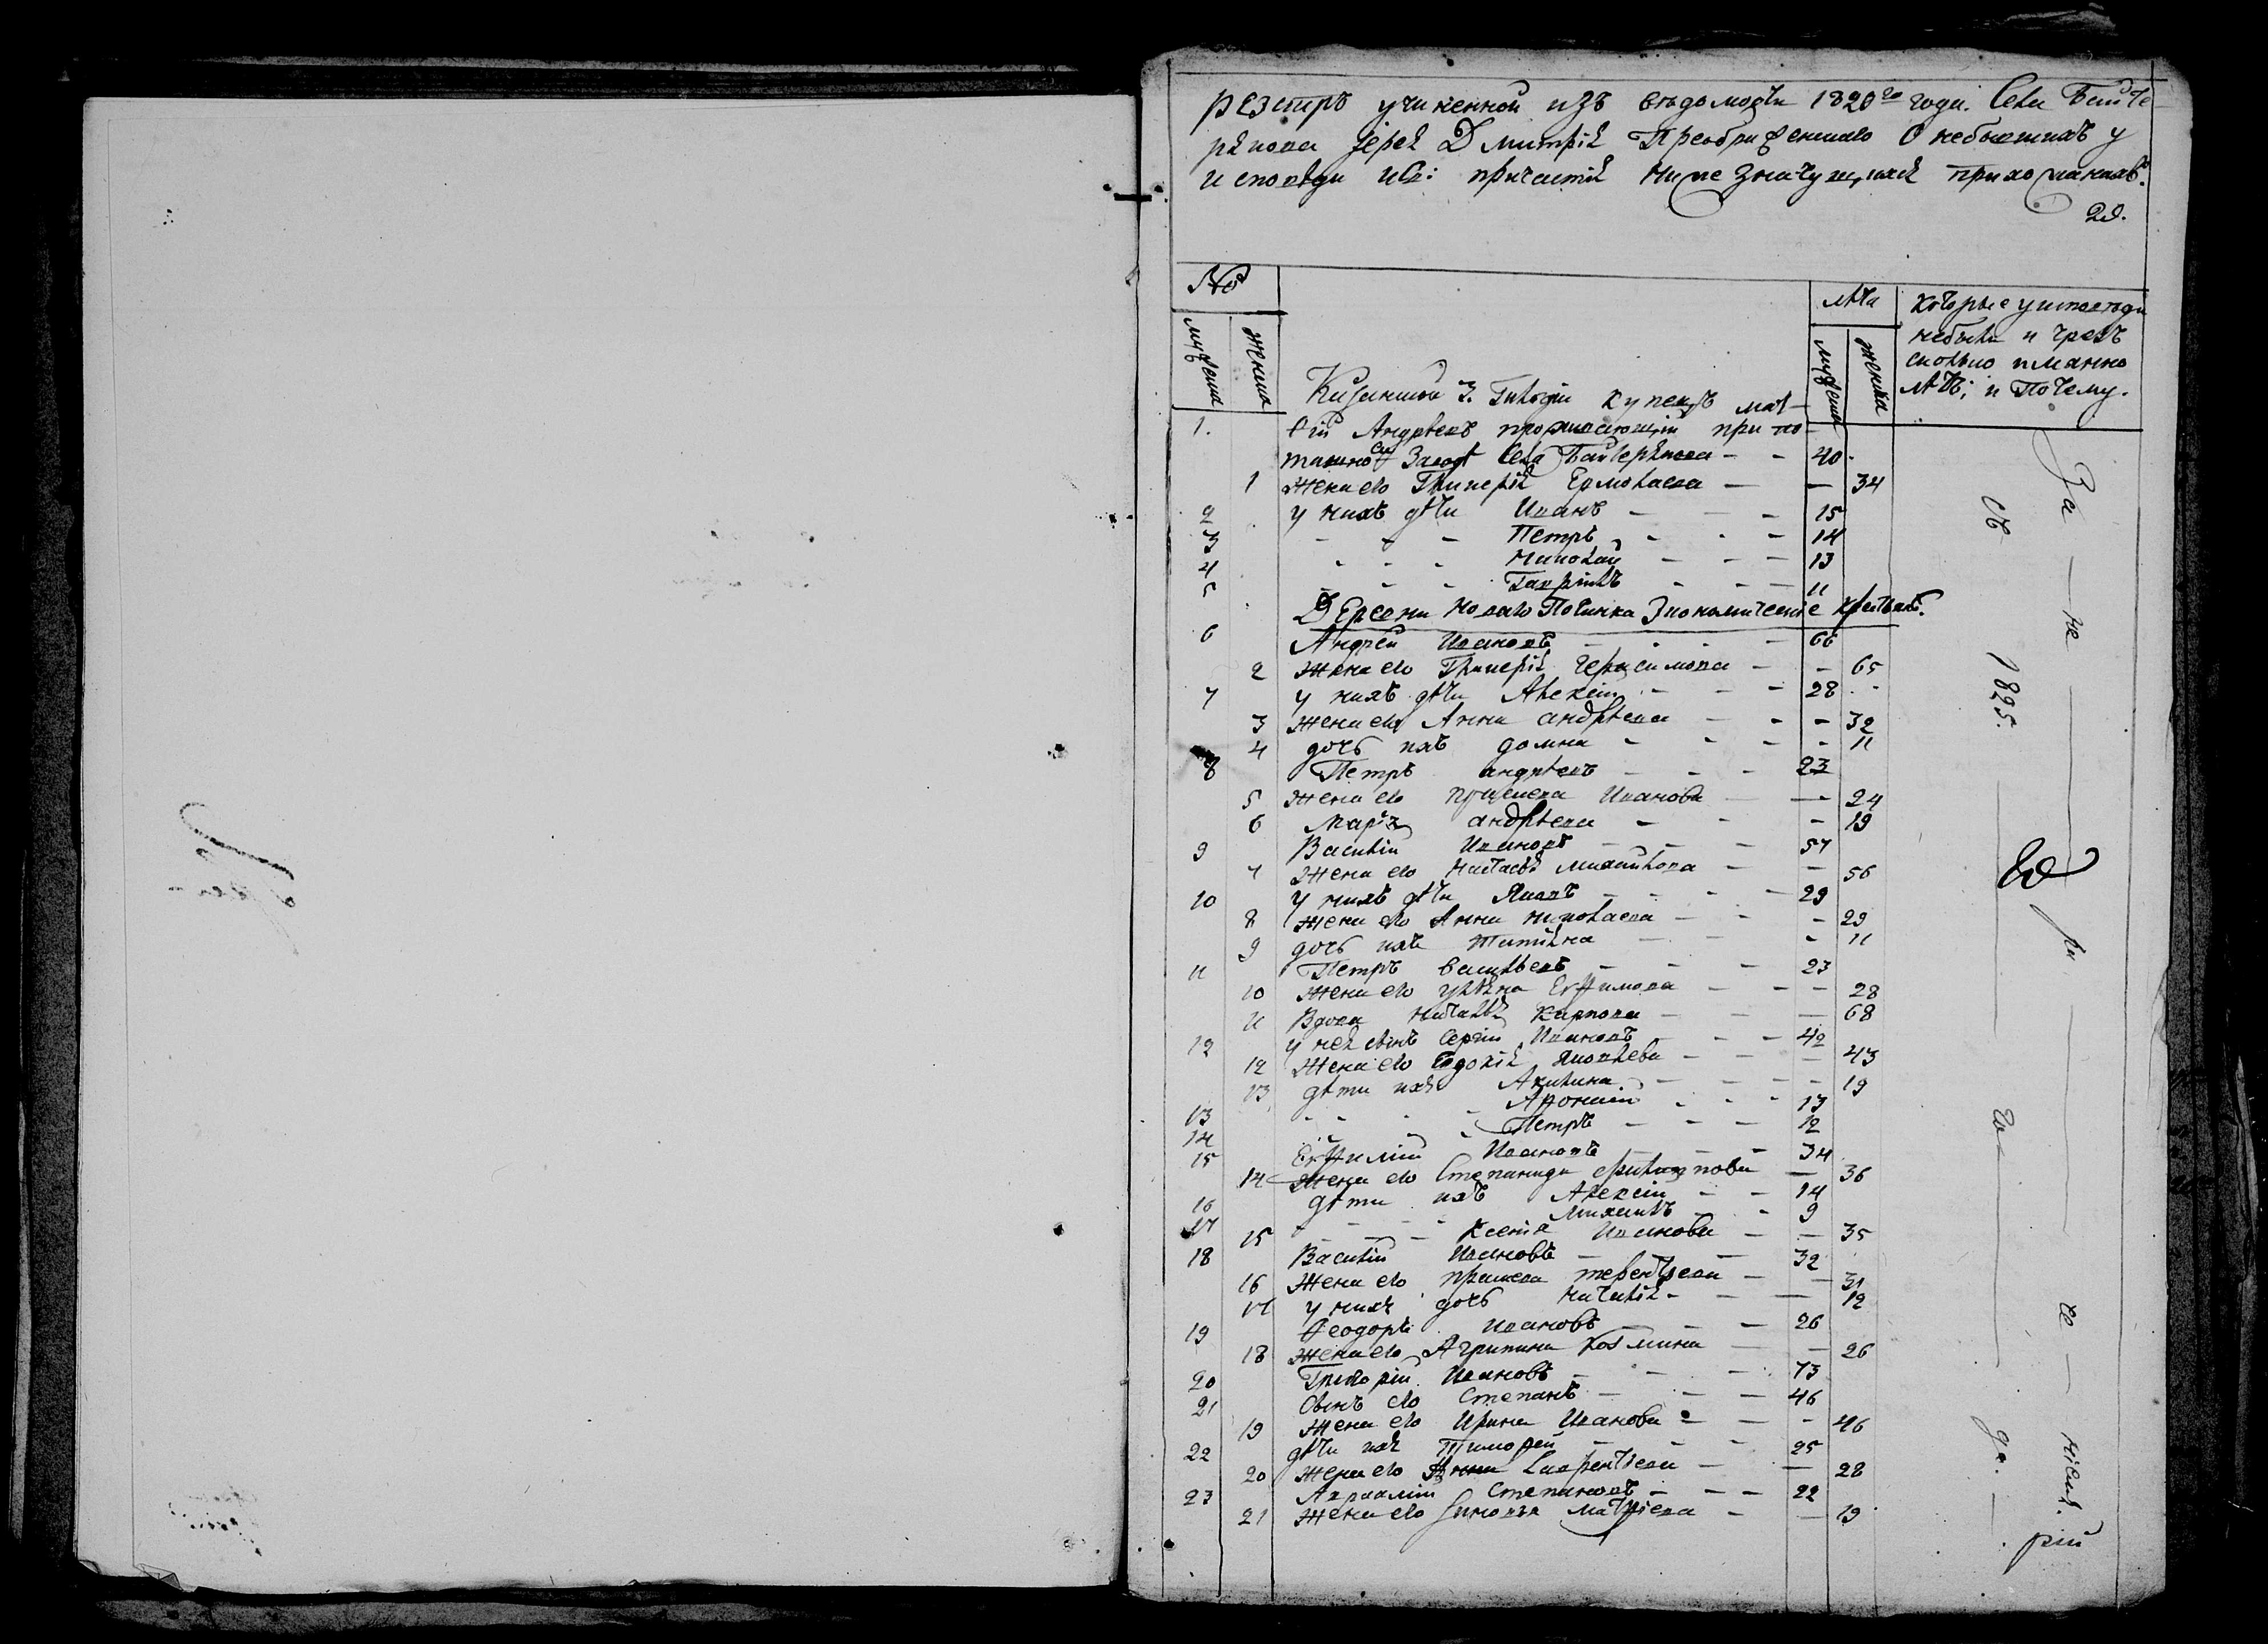 Реэстръ учиненной изъ ведомости 1820го года. Села Байте
рякова Іерея Дмитрія Преображенскаго О небывшихъ у
исповѣди и Св: причастія ниже значущихся прихожанахъ.
№
мужеска женска
лѣта
мужеска женска
которые у исповѣди
небыли и чрезъ
сколько имянно
лѣтъ; и Почему.
Казанской 3. Гильдіи купецъ мат
1. фій Андрѣевъ проживающій при по
ташномъ Заводѣ Села Байтерякова - - 40.
1 Жена его Гликерія Ермолаева - - 34
2 у нихъ дѣти Иванъ - - 15
3 - - - Петръ - - - 14
4 - - - Николай - - - 13
5 - - - Гаврiилъ - - - 11
Деревни Новаго Починка Экономическіе крестьяне.
6 Андрей Ивановъ - - - 66
2 Жена его Гликерія Герасимова - - 65
7 у нихъ дѣти Алексѣй - - - 28
3 Жена его Анна андрѣева - - - 32
4 дочь ихъ домна - - - - 11
8 Петръ андрѣевъ - - - 23
5 Жена его Иванова - - 24
6 Марья андрѣева - - - 19
9 Василій Ивановъ - - - 57
7 Жена его Настасья Михайлова - - 56
10 У нихъ дѣти Яковъ - - - - 29
8 Жена его Анна николаева - - - 29
9 дочь ихъ татіяна - - - 11
11 Петръ васильевъ - - - 23
10 Жена его ульяна Ефѳимова - - - 28
11 Вдова Наталья Карпова - - - 68
12 у нея сынъ Сергій Ивановъ - - 42
12 Жена его Евдокія Яковлева - - - 43
13 дѣти ихъ Акилина - - - - 19
13 - - - Аѳонасій - - - 13
14 - - - Петръ - - - 12
15 Ефѳимій Ивановъ - - - 34
14 Жена его Степанида - 36
16 дѣти ихъ Алексѣй - - 14
17 - - - - Михаилъ - - 9
15 - - - Ксенія Иванова - - 35
18 Василій Ивановъ - - 32
16 Жена его терентьева - - 31
17 у нихъ дочь наталія - - - 12
19 Ѳеодоръ Ивановъ - - - 26
18 Жена его Агрипина Козмина - - 26
20 Григорій Ивановъ - - - 73
21 Сынъ его Степанъ - - - 46
19 Жена его Ирина Иванова - - - 46
22 дѣти ихъ Тимофей - - - 25
20 Жена его Анна Лаврентьева - - 28
23 Авраамій Степановъ - - - 22
21 Жена его матфіева - - 19
За — не — ра — ніемъ
съ 1825. — го — да.